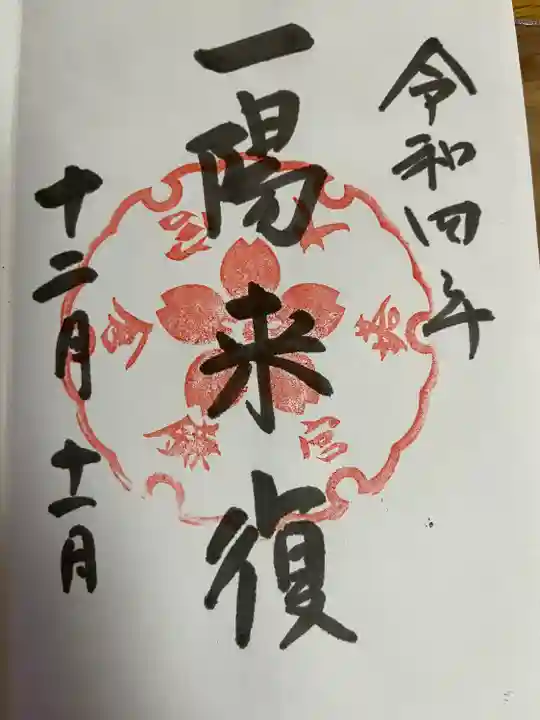 令和四年
一陽来復
十二月十一日